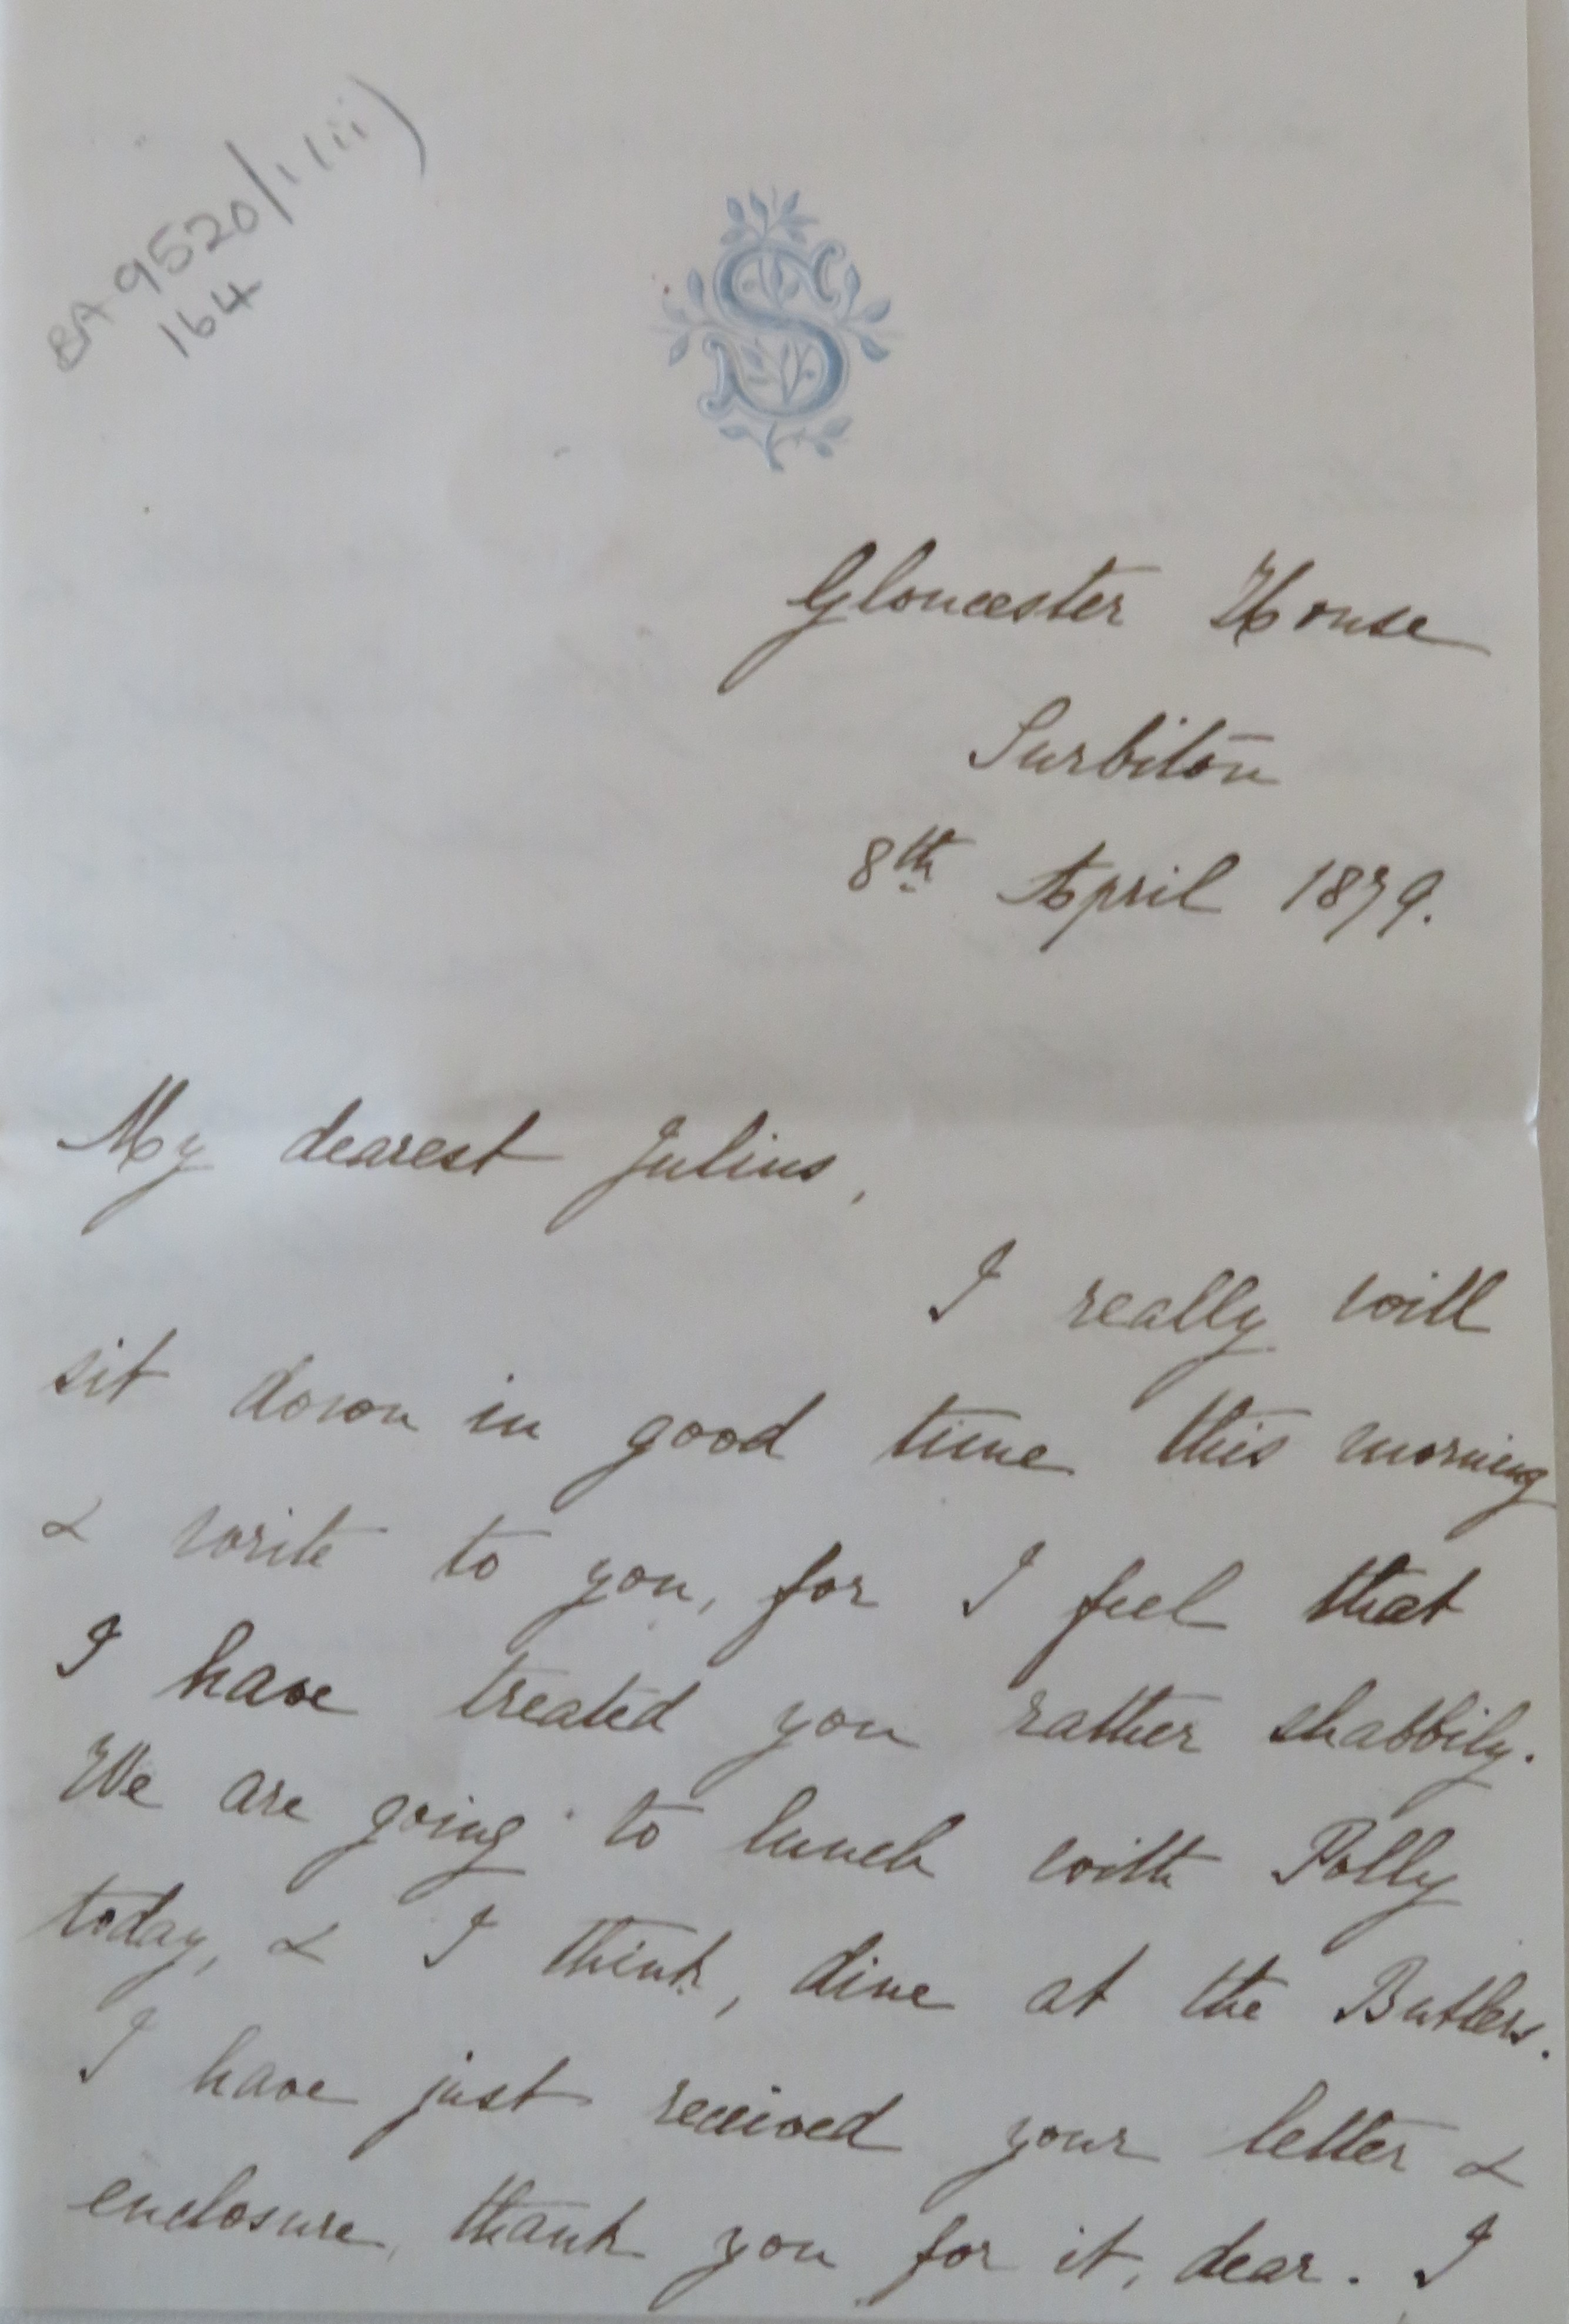 BA 9520/1(iii)
164
S
Gloucester House
Surbiton
8th April 1879.
My dearest Julius,
I really will
sit down in good time this morning
& write to you, for I feel that
I have treated you rather shabbily.
We are going to lunch with Polly
today, & I think, dine at the Butlers.
I have just received your letter &
enclosure, thank you for it, dear. I